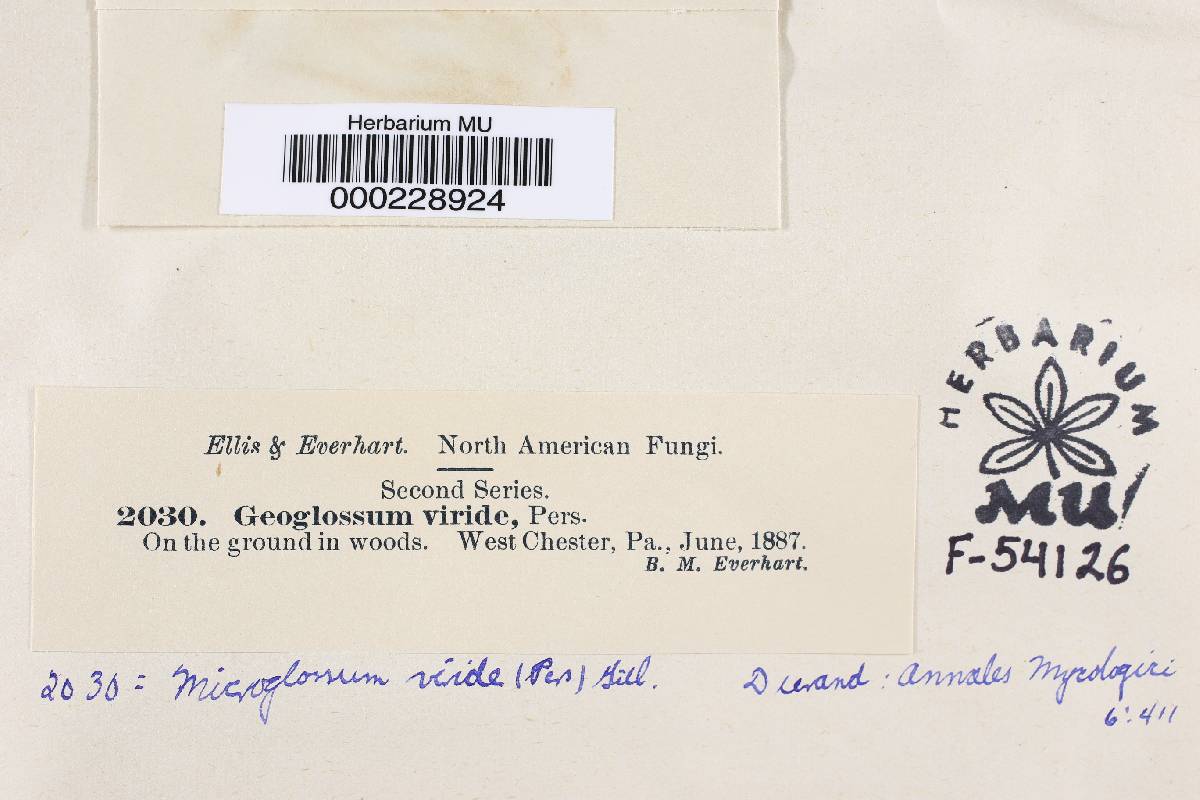 Herbarium MU
000228924
HERBARIUM
MU
F-54126
Ellis & Everhart. North American Fungi.
Second Series.
2030. Geoglossum viride, Pers.
On the ground in woods. West Chester, Pa., June, 1887.
B. M. Everhart.
2030 = Microglossum viride (Pers) Gill. Durand: Annales Mycologici
6:411